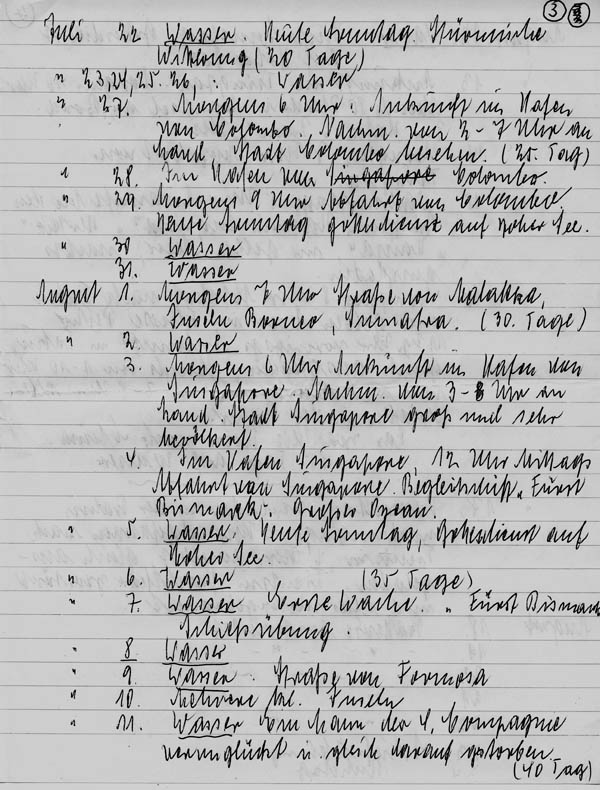 3
Juli 22 Wasser. Heute Sonntag. Stürmische
Witterung (20 Tage)
" 23, 24, 25. 26, : Wasser
" 27. Morgens 6 Uhr. Ankunft im Hafen
von Colombo. Nachm. von 2-7 Uhr an
Land. Stadt Colombo besehen. (25. Tag)
" 28. Im Hafen von Singapore Colombo.
" 29. Morgens 9 Uhr Abfahrt von Colombo.
Heute Sonntag Gottesdienst auf hoher See.
" 30 Wasser
31. Wasser
August 1. Morgens 7 Uhr Straße von Malakka,
Inseln Borneo, Sumatra. (30. Tage)
" 2. Wasser
3. Morgens 6 Uhr Ankunft im Hafen von
Singapore. Nachm. von 3-8 Uhr an
Land. Stadt Singapore groß und sehr
bevölkert.
4. Im Hafen Singapore, 12 Uhr Mittags
Abfahrt von Singapore. Begleitschiff „Fürst
Bismarck". Großer Ozean.
" 5. Wasser. Heute Sonntag, Gottesdienst auf
hoher See.
" 6. Wasser (35 Tage)
" 7. Wasser Erste Wache. „Fürst Bismarck
Schießübung.
" 8 Wasser
" 9. Wasser. Straße von Formosa
" 10. Mehrere kl. Inseln
" 11. Wasser Ein Mann der 4. Compagnie
verunglückt u. gleich darauf gestorben.
(40 Tag)